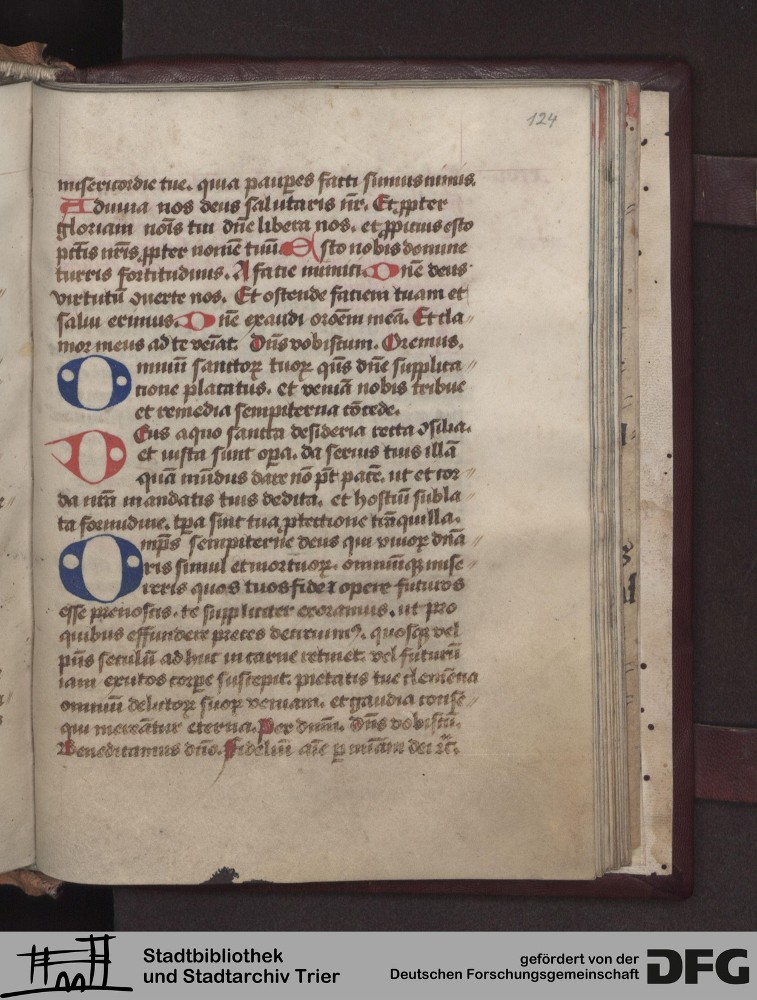 124
misericordie tue. quia paupes facti sumus nimis.
Adiuua nos deus salutaris nr̄. Et ꝓpter
gloriam nois tui dn̄e libera nos. et ꝓpicius esto
pctīs nr̄is ꝓpter nomē tuū. Esto nobis domine
turris fortitudinis. A facie inimici. Dn̄e deus
virtutū ↄuerte nos. Et ostende faciem tuam et
salui erimus. Dn̄e exaudi oroēm meā. Et cla
mor meus ad te veīat. Dn̄s vobiscum. Oremus.
Omniū sanctoꝝ tuoꝝ qīs dn̄e supplica
tione placatus. et veniā nobis tribue
et remedia sempiterna cōcede.
Deus a quo sancta desideria recta ↄsilia.
et iusta sunt oꝑa. da seruis tuis illā
quā mūdus dare nō pt̄ pacē. ut et cor
da nrā mandatis tuis dedita. et hostiū subla
ta formidine. tꝑa sint tua ꝓtectione trāquilla.
Omps̄ sempiterne deus qui viuoꝝ dn̄a
ris simul et mortuoꝝ. omniūqꝫ mise
reris quos tuos fide ⁊ opere futuros
esse prenoscis. te suppliciter exoramus. ut pro
quibus effundere preces decreuimꝰ. quosqꝫ vel
pn̄s seculū adhuc in carne retinet. vel futurū
iam exutos corꝑe suscepit. pietatis tue clemēcia
omniū delictoꝝ suoꝝ veniam. et gaudia conse
qui mereātur eterna. Per dn̄m. Dn̄s vobiscū.
Benedicamus dn̄o. Fideliū aīe ꝑ miāam dei ⁊c̄.
Stadtbibliothek
und Stadtarchiv Trier
gefördert von der
Deutschen Forschungsgemeinschaft
DFG